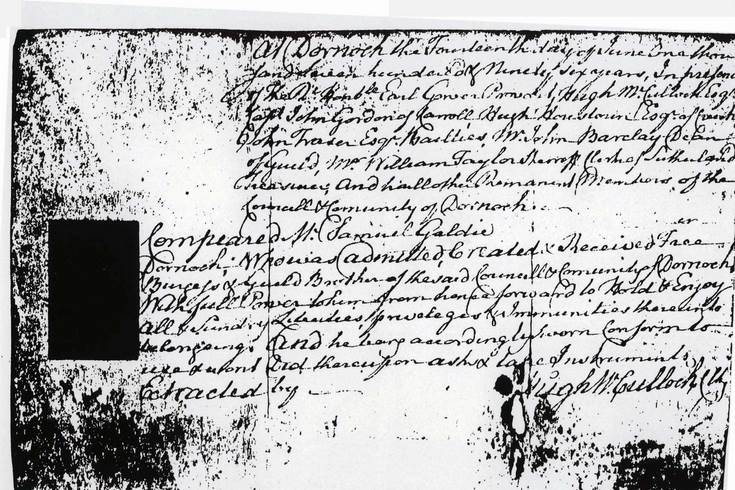 At Dornoch the Fourteenth day of June One thou
sand Seven hundered & Ninety six years, In presence
of the Rt. Honble Earl Gower Provost, Hugh McCulloch Esqr.
Capt. John Gordon of Carroll Hugh Houstoun Esqr. of
John Fraser Esqr. Baillies, Mr. John Barclay Dean
of Gueild, Mr. William Taylor Sherreff Clerk of Sutherland
Treasurer, And haill other Remanent Members of the
Councill & Comunity of Dornoch.
Compeared Mr. Samuel Galdie
Dornoch; Who was Admitted, Created & Received Free
Burgess & Gueild Brother of the said Councill & Comunity of Dornoch
With full Power to him from hence forward to Hold & Enjoy
All & Sundry Liberties, priveleges & Immunities thereunto
belonging. And he being accordingly sworn Conform to
use & wont Did thereupon ask & take Instruments
Extracted by Hugh McCulloch Clk